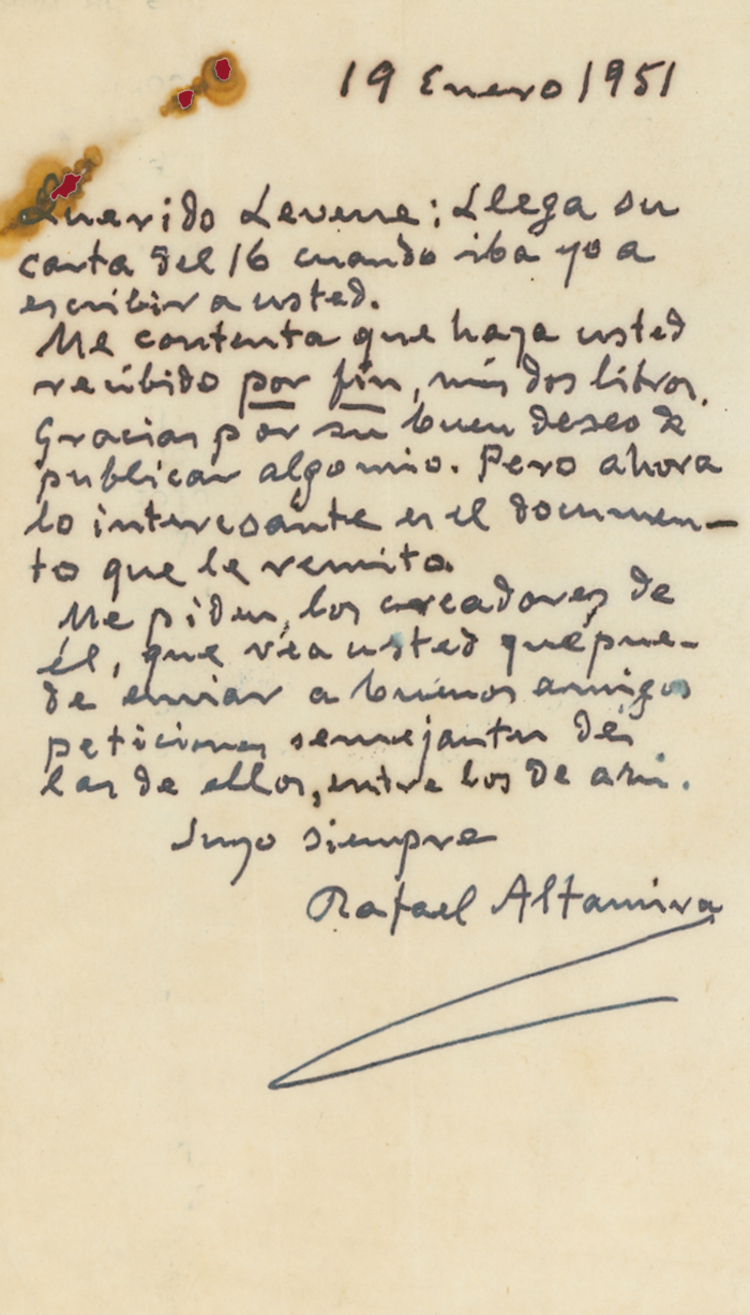 19 Enero 1951
Querido Levene: Llega su
carta del 16 cuando iba yo a
escribir a usted.
Me contenta que haya usted
recibido por fin, mis dos libros.
Gracias por su buen deseo de
publicar algo mio. Pero ahora
lo interesante es el documen-
to que le remito.
Me piden, los creadores de
él, que vea usted qué pue-
de enviar a buenos amigos
peticiones semejantes de
las de ellos, entre los de ahi.
Suyo siempre
Rafael Altamira